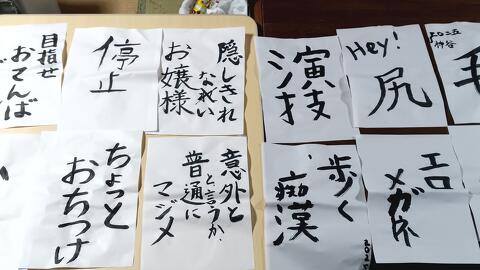 目指せ
おてんば
停止
隠しきれ
お嬢様
演技
Hey!
尻
神谷
毛
ちょっと
おちつけ
意外と
と言うか
普通に
マジメ
歩く
痴漢
エロ
メガネ